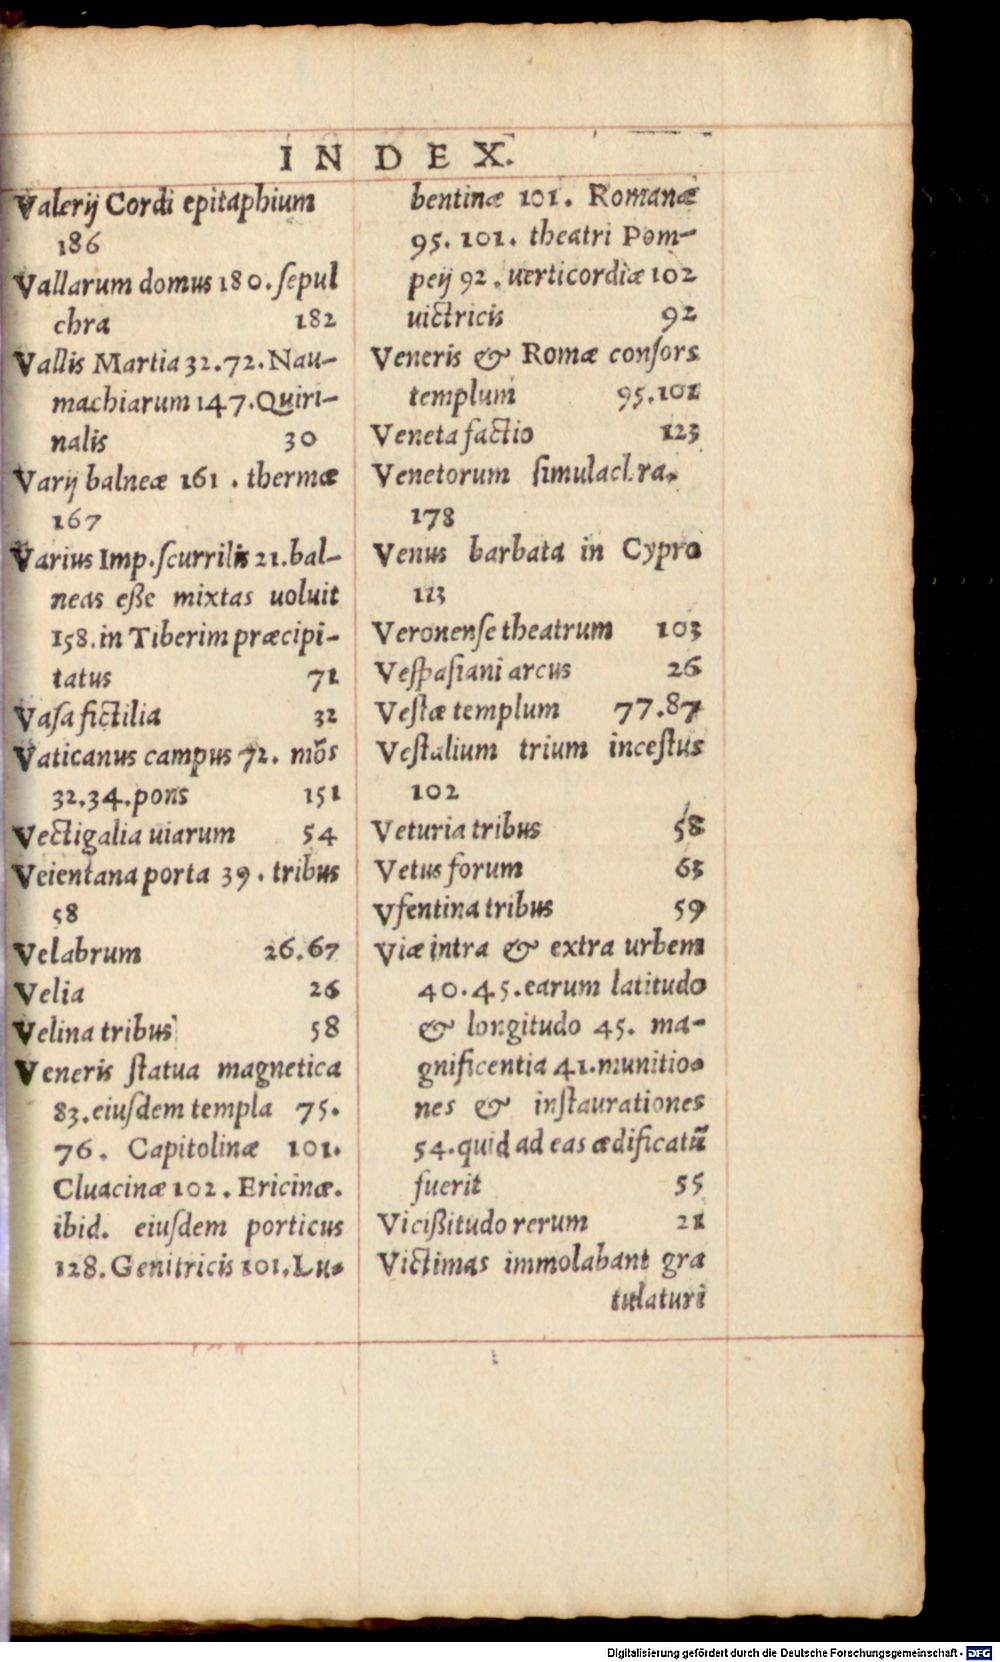 INDEX.
Valerij Cordi epitaphium
186
Vallarum domus 180. ſepul
chra 182
Vallis Martia 32.72. Nau-
machiarum 147. Quiri-
nalis 30
Varij balneæ 161. thermæ
167
Varius Imp. ſcurrilis 21. bal-
neas eße mixtas uoluit
158. in Tiberim præcipi-
tatus 71
Vaſa fictilia 32
Vaticanus campus 72. mõs
32.34. pons 151
Vectigalia uiarum 54
Veientana porta 39. tribus
58
Velabrum 26.67
Velia 26
Velina tribus 58
Veneris ſtatua magnetica
83. eiuſdem templa 75.
76. Capitolinæ 101.
Cluacinæ 102. Ericinæ.
ibid. eiuſdem porticus
128. Genitricis 101. Lu-
bentinæ 101. Romanæ
95. 101. theatri Pom-
peij 92. uerticordiæ 102
uictricis 92
Veneris & Romæ conſors
templum 95.101
Veneta factio 123
Venetorum ſimulachra.
178
Venus barbata in Cypro
113
Veronenſe theatrum 103
Veſpaſiani arcus 26
Veſtæ templum 77.87
Veſtalium trium inceſtus
102
Veturia tribus 58
Vetus forum 63
Vfentina tribus 59
Viæ intra & extra urbem
40.45. earum latitudo
& longitudo 45. ma-
gnificentia 41. munitio-
nes & inſtaurationes
54. quid ad eas ædificatũ
fuerit 55
Vicißitudo rerum 21
Victimas immolabant gra
tulaturi
Digitalisierung gefördert durch die Deutsche Forschungsgemeinschaft - DFG